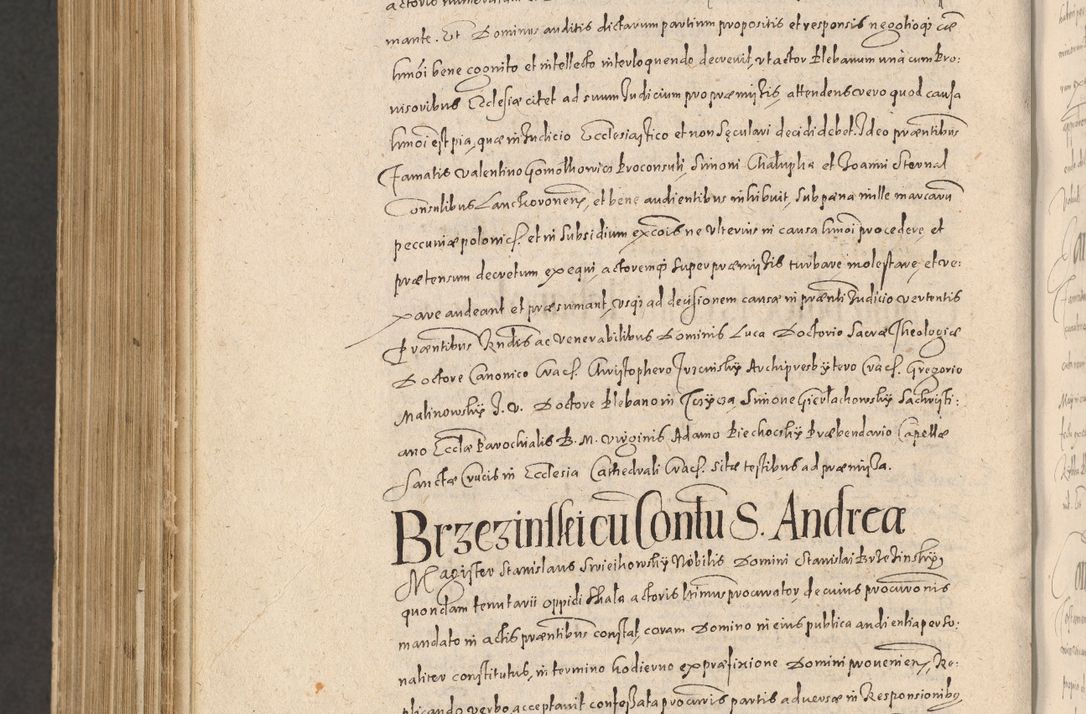 mante. Et Dominus auditis dictarum partium propositis et responsis negotioq; cãe
hmõi bene cognito et intellecto interloquendo decrevit, vt actor Plebanum unà cum Pro:
visoribus Ecclesiæ citet ad suum Iudicium pro præmissis, attendens vero quod causa
hmõi est pia, quæ in Iudicio Ecclesiastico et non Sęculari decidi debet. Ideo præntibus
Famatis Valentino Gomolkowicz Proconsuli, Simoni Chałupka et Joanni Sternal
Consulibus Lanckoronen, et bene audientibus inhibuit, sub pæna mille marcarũ
peccuniæ polonicę. et in subsidium excõis ne vlterius in causa hmõi procedere, et
prætensum decretum exequi actoremq; super præmissis turbare, molestare, et ve:
xare audeant et præsumant, vsq; ad decisionem causæ in prænti Iudicio vertentis
Præntibus Rndis ac Venerabilibus Dominis Luca Doctorio Sacræ Theologiæ
Doctore Canonico Crac. Christophero Archipresbytero Crac. Gregorio
Malinowsky I. V. Doctore Plebano in Simone Gierłachowsky Sachristi:
ano Ecclæ Parochialis B. M. Virginis Adamo Piechocsky Præbendario Capellæ
Sanctæ Crucis in Ecclesia Cathedrali Crac. sitæ testibus ad præmissa.
Brzezinskei cũ Conttu S. Andrea
Magister Stanislaus Swieihowsky Nobilis Domini Stanislai Brzezinsky
quondam tenutarii oppidi Skala actoris ltimus procurator, de cuius procuronis
mandato in actis præntibus constat, coram Domino in eius publica audientia perso:
naliter constitutus, in termino hodierno ex præfixione Domini provenien, Re:
plicando verbo acceptavit confessata procuris partis adversæ in Responsionibus